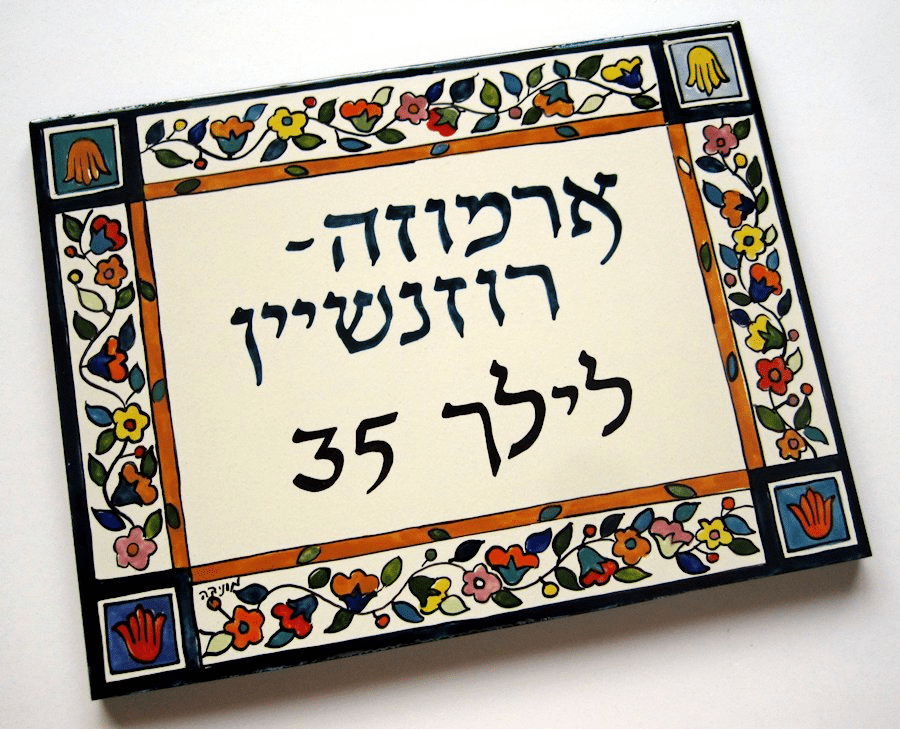 ארמוזה-
רוזנשיין
לילך 35
מוניבה